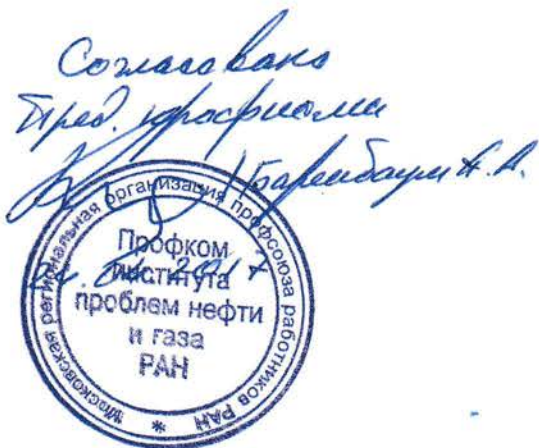 Согласовано
Пред. профкома
/Баренбаум А.А.
Московская региональная организация профсоюза работников РАН
*
Профком
института
проблем нефти
и газа
РАН
2017